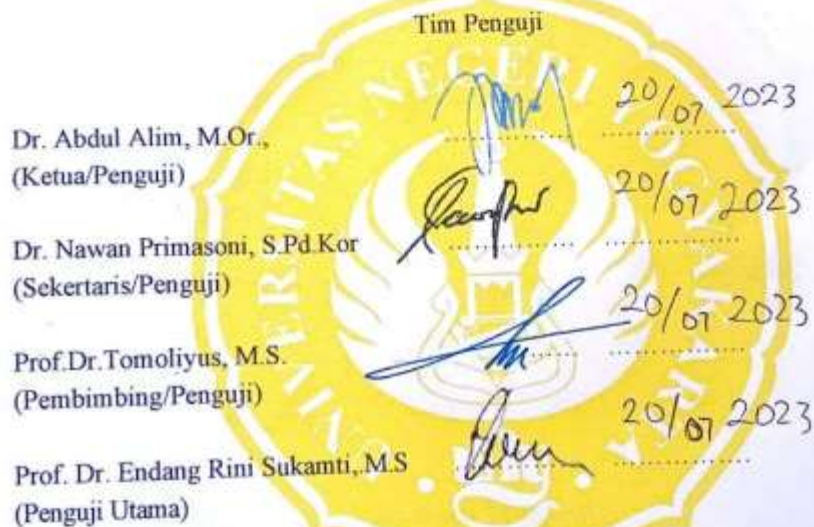 Tim Penguji
Dr. Abdul Alim, M.Or.,
(Ketua/Penguji)
20/07 2023
Dr. Nawan Primasoni, S.Pd.Kor
(Sekertaris/Penguji)
20/07 2023
Prof.Dr.Tomoliyus, M.S.
(Pembimbing/Penguji)
20/07 2023
Prof. Dr. Endang Rini Sukamti, M.S
(Penguji Utama)
20/07 2023
UNIVERSITAS NEGERI YOGYAKARTA